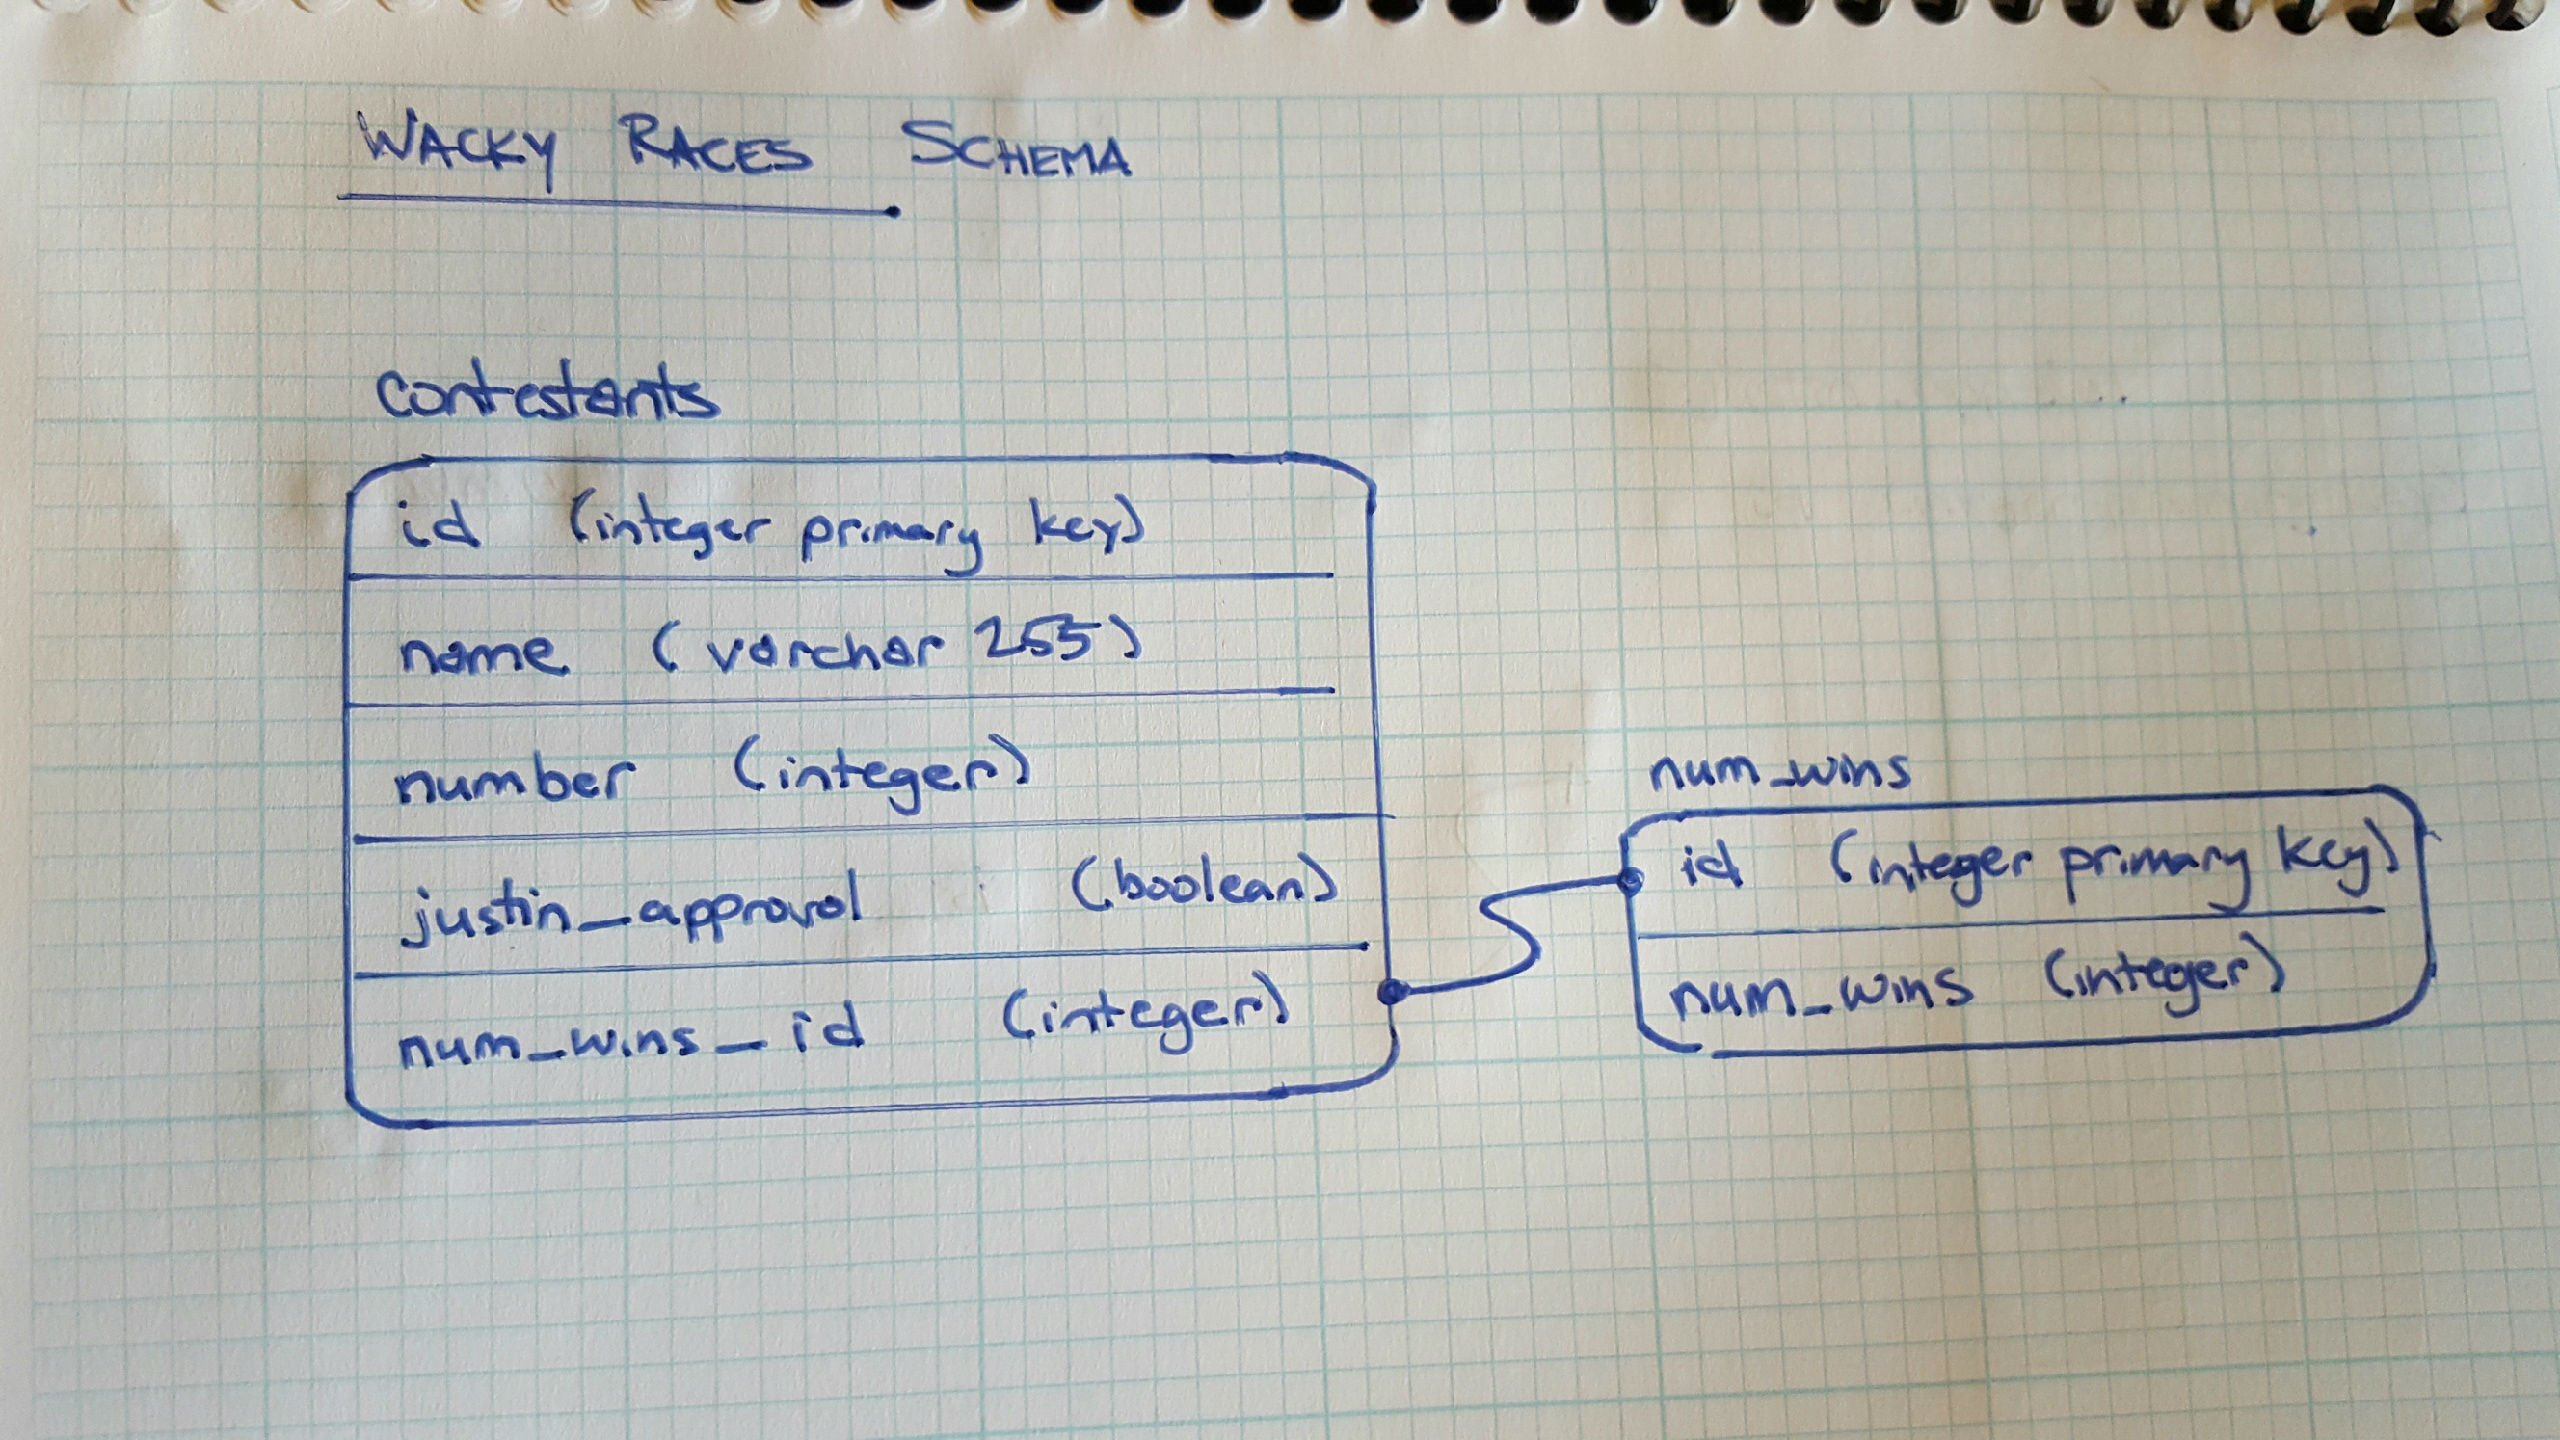 WACKY RACES SCHEMA
contestants
id (integer primary key)
name (varchar 255)
number (integer)
justin_approval (boolean)
num_wins_id (integer)
num_wins
id (integer primary key)
num_wins (integer)